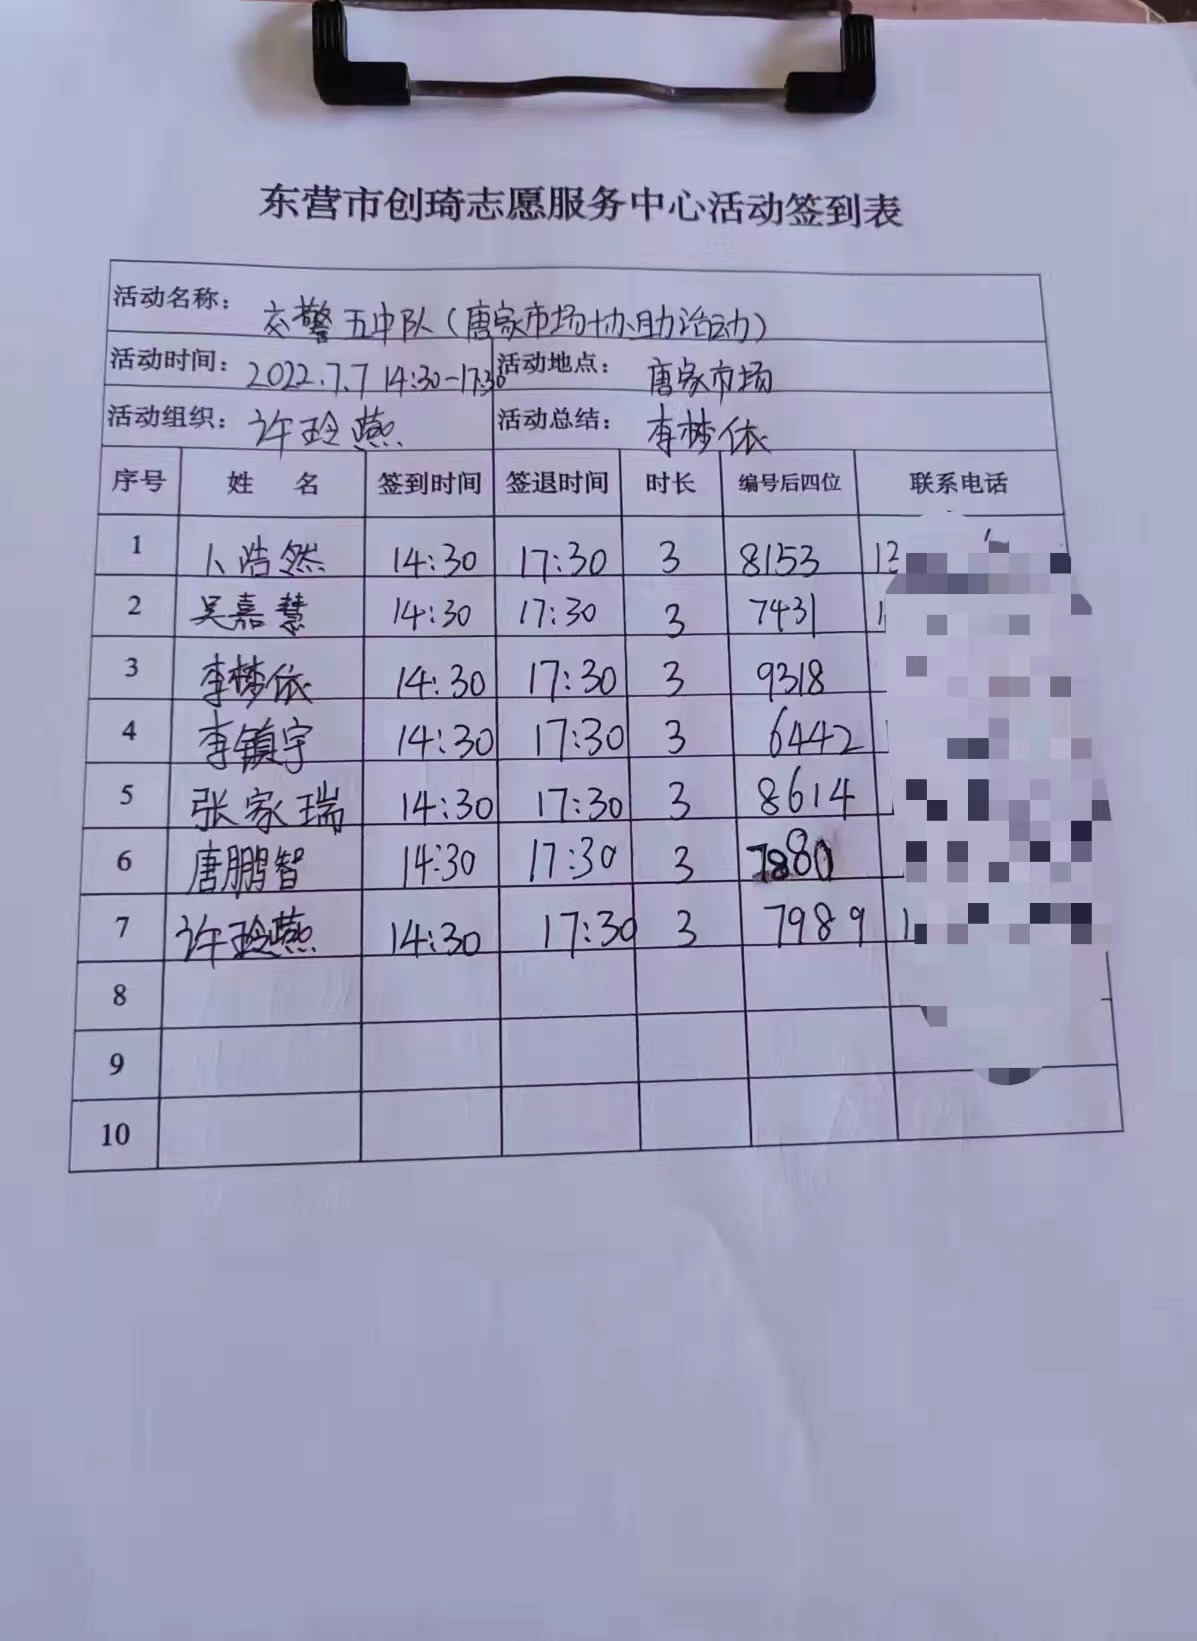 东营市创琦志愿服务中心活动签到表
活动名称： 交警五中队（唐家市场协助活动）
活动时间： 2022.7.7 14:30-17:30 活动地点： 唐家市场
活动组织： 许玲燕 活动总结： 李梦依
序号 姓 名 签到时间 签退时间 时长 编号后四位 联系电话
1 卜浩然 14:30 17:30 3 8153
2 吴嘉慧 14:30 17:30 3 7431
3 李梦依 14:30 17:30 3 9318
4 李镇宇 14:30 17:30 3 6442
5 张家瑞 14:30 17:30 3 8614
6 唐鹏智 14:30 17:30 3 7880
7 许玲燕 14:30 17:30 3 7989
8
9
10